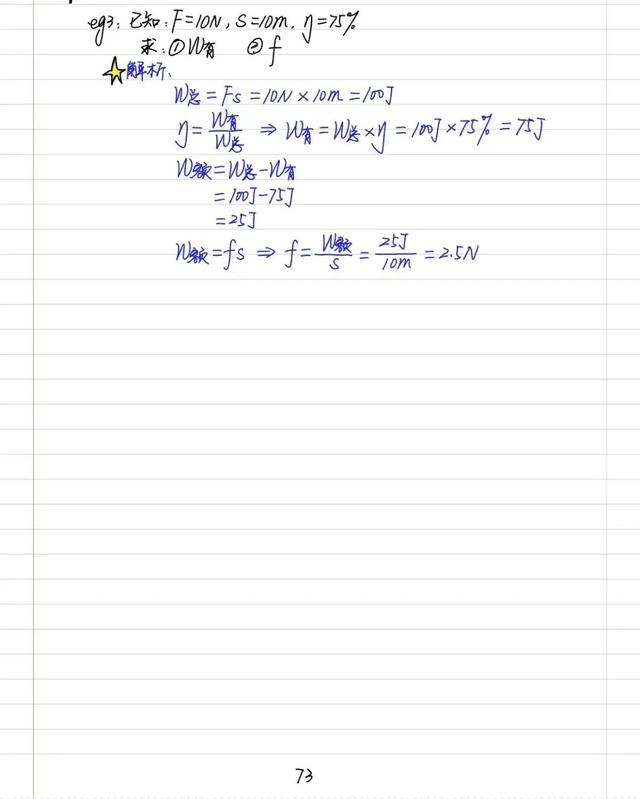 eg3: 已知: F=10N, S=10m, η=75%
求: ①W有 ②f
解析:
W总=Fs=10N×10m=100J
η=W有/W总 ⇒ W有=W总×η=100J×75%=75J
W额=W总-W有
=100J-75J
=25J
W额=fs ⇒ f=W额/s=25J/10m=2.5N
73